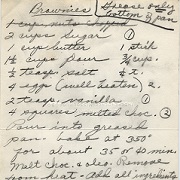 Brownies
Grease only bottom of pan
1 cup nuts chopped
2 cups sugar ①
1 cup butter 1 stick
1½ cups flour ¾ cup.
½ teasp. salt ¼ t.
4 eggs (well beaten) 2.
2 teasp. vanilla ①
4 squares melted choc. ②
Pour into greased
pan. Bake at 350°
for about 35 or 40 min.
Melt choc. & oleo. Remove
from heat - Add all ingredients